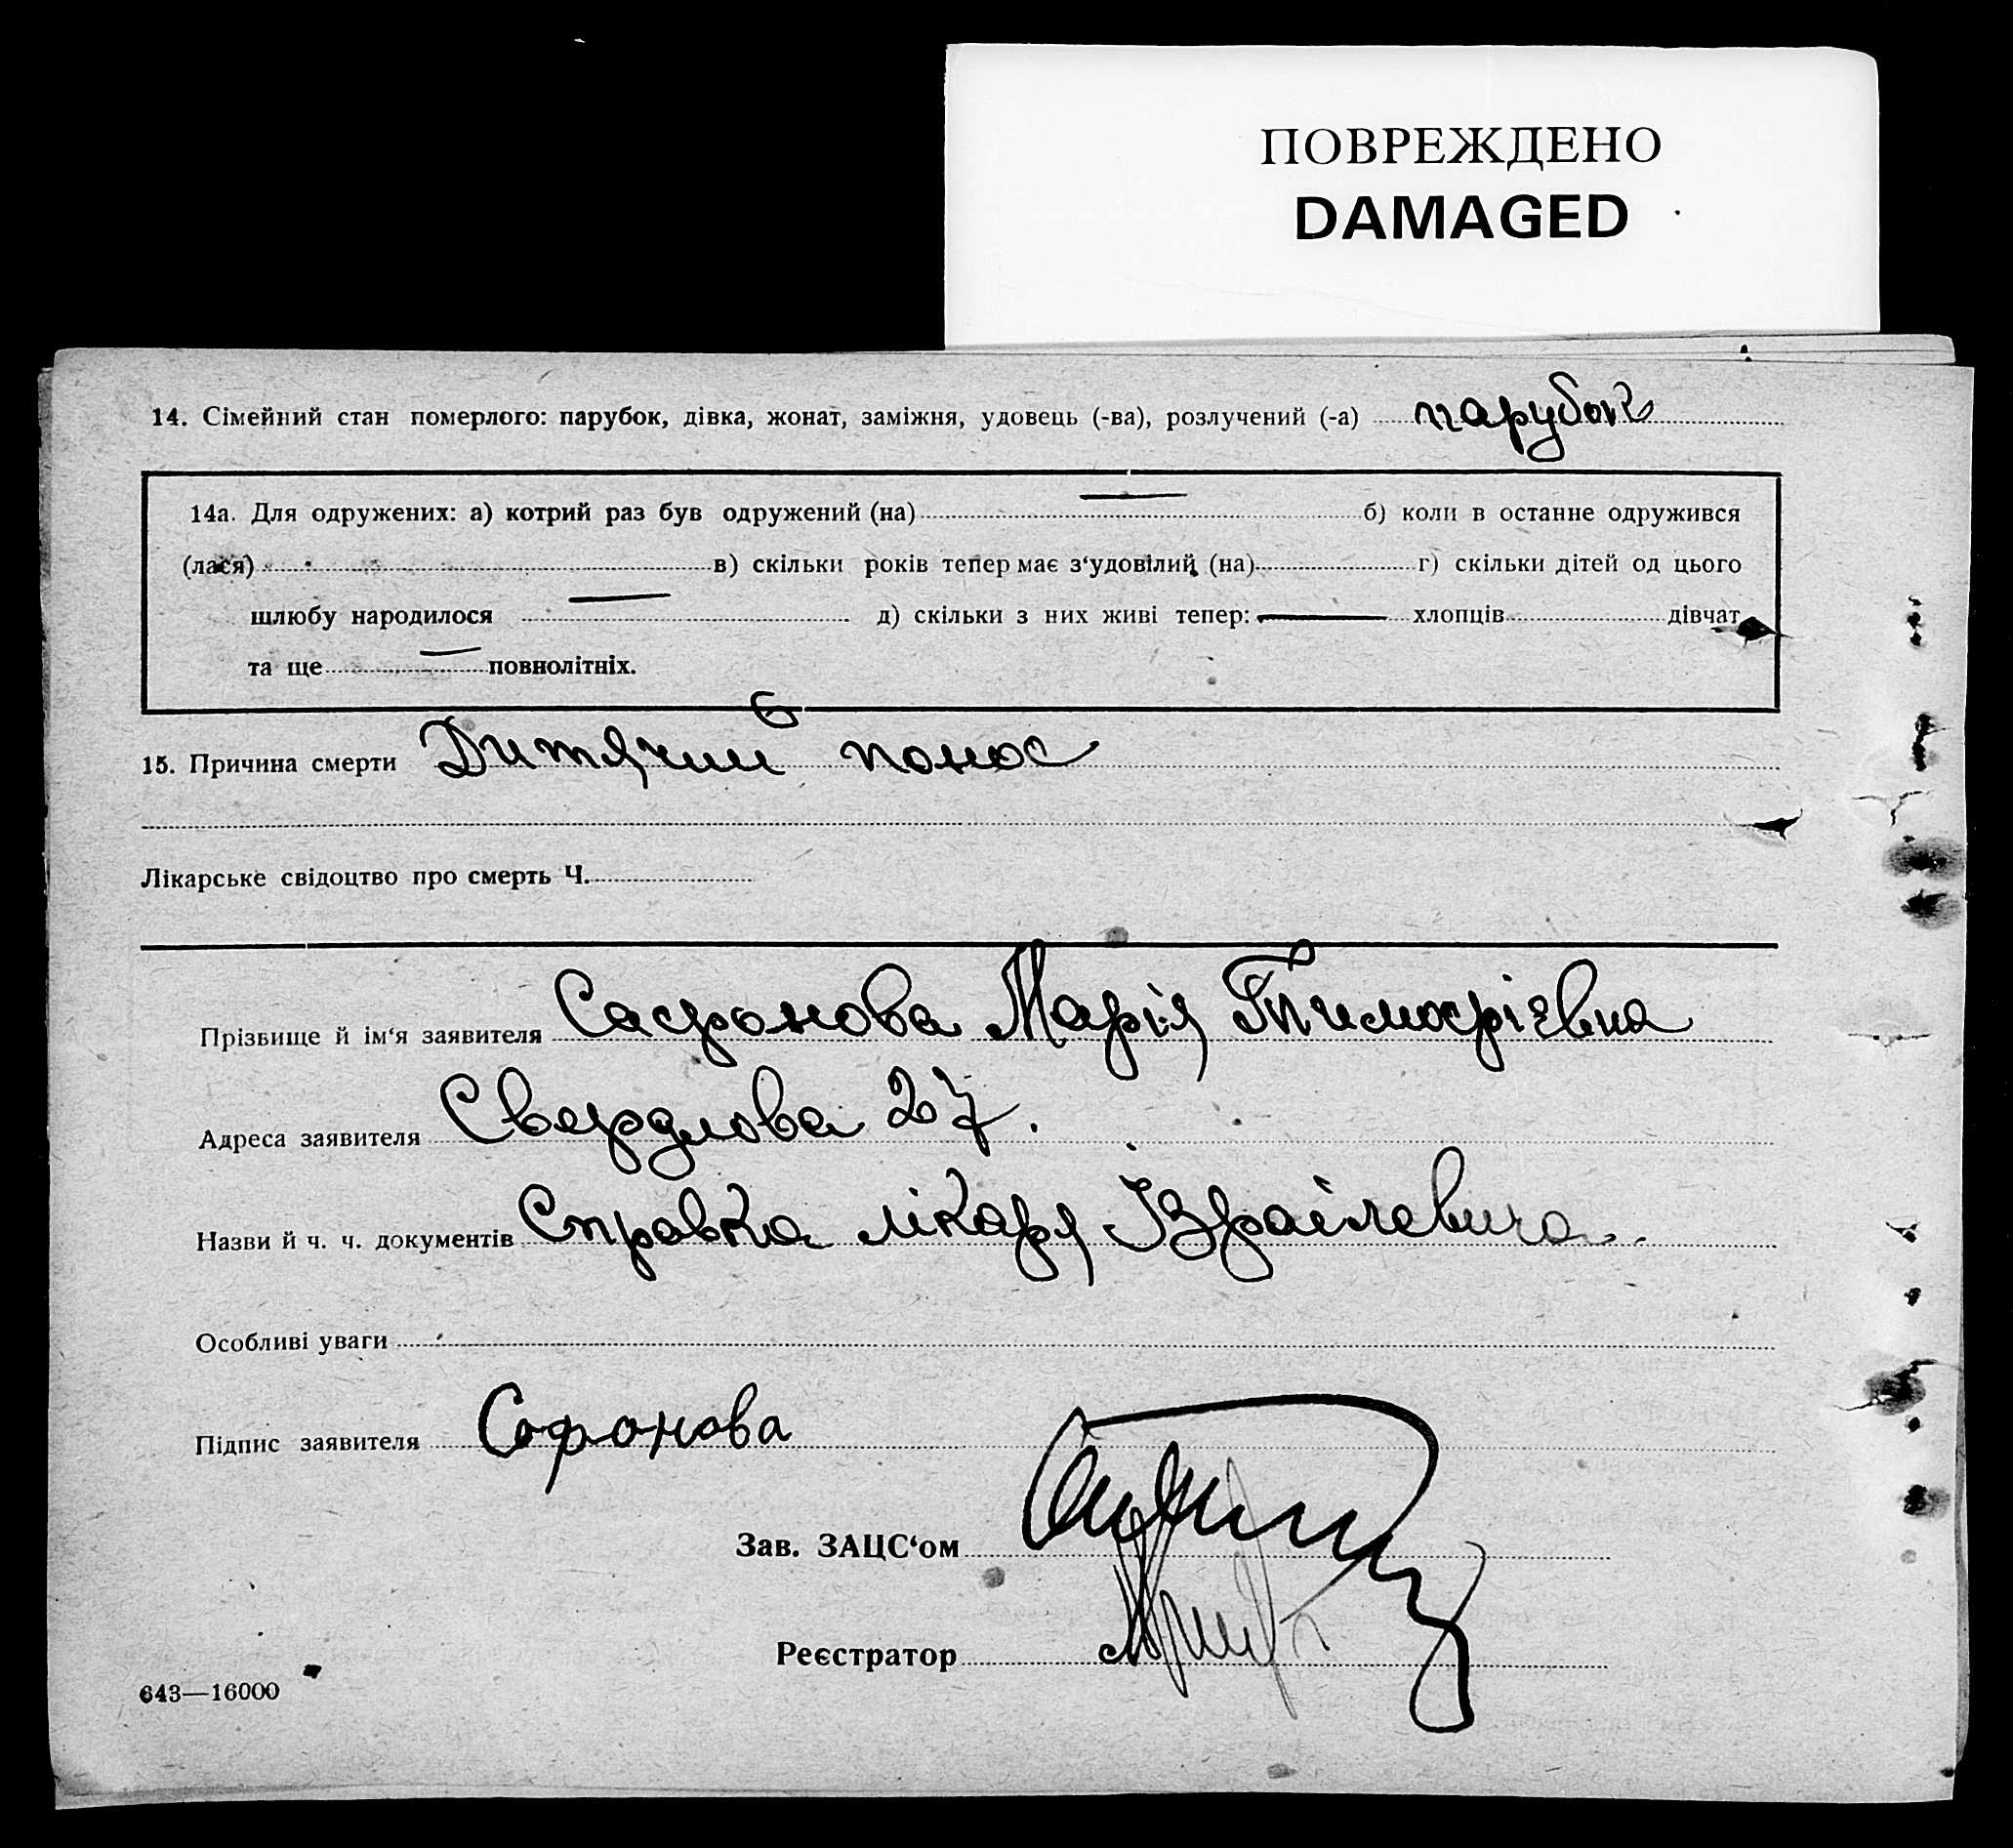 ПОВРЕЖДЕНО
DAMAGED
14. Сімейний стан померлого: парубок, дівка, жонат, заміжня, удовець (-ва), розлучений (-а) парубок
14а. Для одружених: а) котрий раз був одружений (на) — б) коли в останнє одружився
(лася) в) скільки років тепер має з‘удовілий (на) г) скільки дітей од цього
шлюбу народилося — д) скільки з них живі тепер: — хлопців дівчат
та ще — повнолітніх.
15. Причина смерти Дитячий понос
Лікарське свідоцтво про смерть Ч.
Прізвище й ім‘я заявителя Сафонова Марія Тимофіївна
Адреса заявителя Свердлова 27.
Назви й ч. ч. документів Справка лікаря Ізраілевича.
Особливі уваги
Підпис заявителя Сафонова
Зав. ЗАЦС‘ом
Реєстратор
643—16000